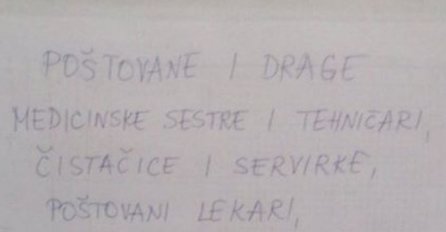 POŠTOVANE I DRAGE
MEDICINSKE SESTRE I TEHNIČARI,
ČISTAČICE I SERVIRKE,
POŠTOVANI LEKARI,